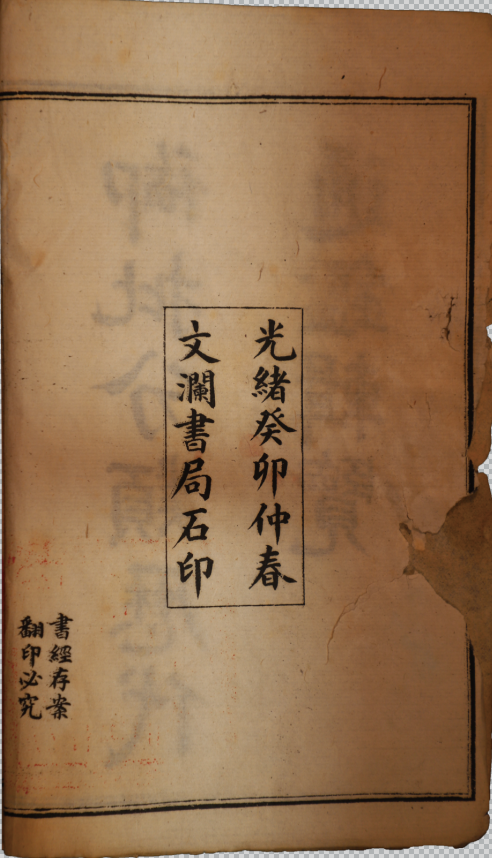 光緒癸卯仲春
文瀾書局石印
書經存案
翻印必究